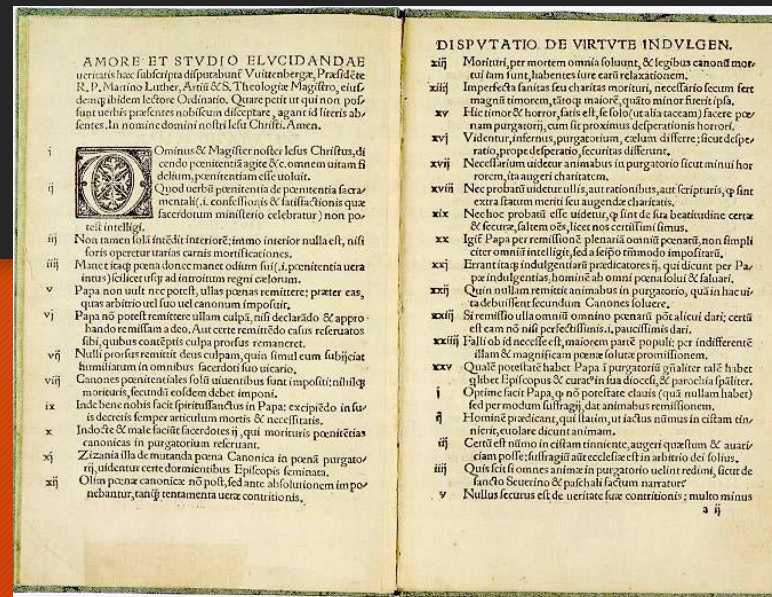 AMORE ET STVDIO ELVCIDANDAE
ueritatis hæc subscripta disputabunt̃ Vuittenbergæ, Præsidẽte
R. P. Martino Luther, Artiũ & S. Theologiæ Magistro, eius-
demq̃ ibidem lectore Ordinatio. Quare petit ut qui non pos-
sunt uerbis præsentes nobiscum disceptare, agant id literis ab-
sentes. In nomine domini nostri Iesu Christi. Amen.
i Ominus & Magister noster Iesus Christus, di
cendo pœnitentiã agite &c. omnem uitam fi
delium, pœnitentiam esse uoluit.
ij Quod uerbũ pœnitentia de pœnitentia sacra-
mentali (.i. confessionis & satisfactionis quæ
sacerdotum ministerio celebratur) non po-
test intelligi.
iij Non tamen solã intẽdit interiorẽ; immo interior nulla est, nisi
foris operetur uarias carnis mortificationes.
iiij Manet itaq̃ pœna donec manet odium sui (.i. pœnitentia uera
intus) scilicet usq̃ ad introitum regni cælorum.
v Papa non uult nec potest, ullas pœnas remittere; præter eas,
quas arbitrio uel suo uel canonum imposuit.
vj Papa nõ potest remittere ullam culpã, nisi declarãdo & appro-
bando remissam a deo. Aut certe remittẽdo casus reseruatos
sibi, quibus contẽptis culpa prorsus remaneret.
vij Nulli prorsus remittit deus culpam, quin simul eum subijciat
humiliatum in omnibus sacerdoti suo uicario.
viij Canones pœnitentiales solũ uiuentibus sunt impositi; nihilq̃
morituris, secundũ eosdem debet imponi.
ix Inde bene nobis facit spiritussanctus in Papa; excipiẽdo in su-
is decretis semper articulum mortis & necessitatis.
x Indocte & male faciũt sacerdotes ij, qui morituris pœnitẽtias
canonicas in purgatorium reseruant.
xj Zizania illa de mutanda pœna Canonica in pœnã purgato-
rij, uidentur certe dormientibus Episcopis seminata.
xij Olim pœnæ canonicæ nõ post, sed ante absolutionem impo-
nebantur, tanq̃ tentamenta ueræ contritionis.
DISPVTATIO DE VIRTVTE INDVLGEN.
xiij Morituri, per mortem omnia soluunt, & legibus canonũ mor-
tui iam sunt, habentes iure earũ relaxationem.
xiiij Imperfecta sanitas seu charitas morituri, necessario secum fert
magnũ timorem, tãtoq̃ maiorẽ, quãto minor fuerit ipsa.
xv Hic timor & horror, satis est, se solo (ut alia taceam) facere pœ-
nam purgatorij, cum sit proximus desperationis horrori.
xvj Videntur, infernus, purgatorium, cælum differre; sicut despe-
ratio, prope desperatio, securitas differunt.
xvij Necessarium uidetur animabus in purgatorio sicut minui hor
rorem, ita augeri charitatem.
xviij Nec probatũ uidetur ullis, aut rationibus, aut scripturis, q̃ sint
extra statum meriti seu augendæ charitatis.
xix Nec hoc probatũ esse uidetur, q̃ sint de sua beatitudine certæ
& securæ, saltem oẽs, licet nos certissimi simus.
xx Igit̃ Papa per remissionẽ plenariã omniũ pœnarũ, non simpli
citer omniũ intelligit, sed a seipo tĩmodo impositarũ.
xxj Errant itaq̃ indulgentiarũ prædicatores ij, qui dicunt per Pa-
pæ indulgentias, hominẽ ab omni pœna solui & saluari.
xxij Quin nullam remittit animabus in purgatorio, quã in hac ui-
ta debuissent secundum Canones soluere.
xxiij Si remissio ulla omniũ omnino pœnarũ põt alicui dari; certũ
est eam nõ nisi perfectissimis .i. paucissimis dari.
xxiiij Falli ob id necesse est, maiorem partẽ populi; per indifferentẽ
illam & magnificam pœnæ solutæ promissionem.
xxv Qualẽ potestatẽ habet Papa ĩ purgatoriũ gñaliter talẽ habet
q̃libet Episcopus & curatꝰ in sua diocesi, & parochia spãliter.
i Optime facit Papa, q̃ nõ potestate clauis (quã nullam habet)
sed per modum suffragij, dat animabus remissionem.
ij Hominẽ prædicant, qui statim, ut iactus nũmus in cistam tin-
nierit, euolare dicunt animam.
iij Certũ est nũmo in cistam tinniente, augeri quæstum & auari-
ciam posse; suffragiũ aũt ecclesiæ est in arbitrio dei solius.
iiij Quis scit si omnes animæ in purgatorio uelint redimi, sicut de
sancto Seuerino & paschali factum narratur?
v Nullus securus est de ueritate suæ contritionis; multo minus
a ij